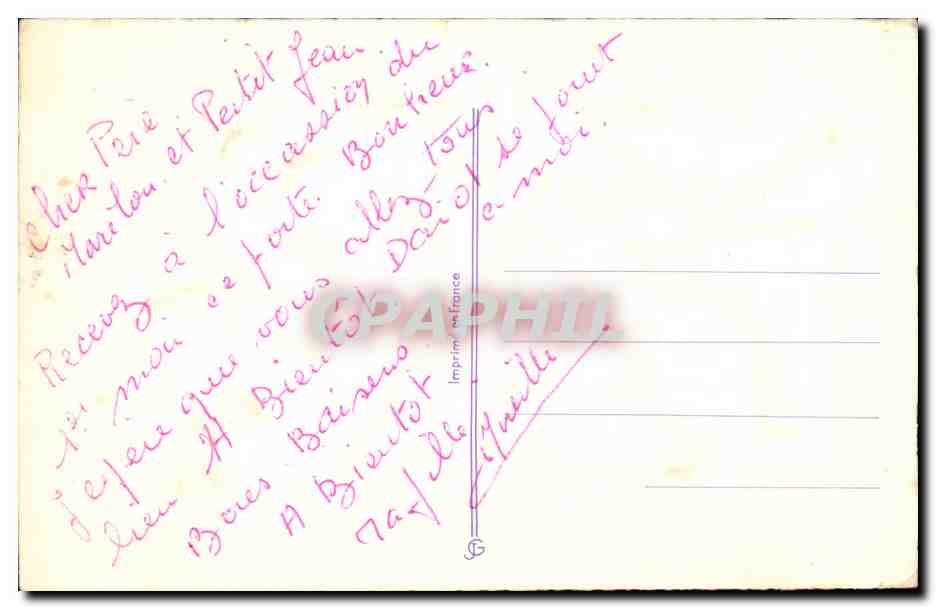 Cher Père
Marilou et Petit Jean
Recevez à l'occassion du
1er mai ce porte Bonheur.
J'espère que vous allez tous
bien A Bientôt
Bons Baisers de tout
A Bientôt a moi.
Ta fille
Imprimé en France
CPAPHIL
JG